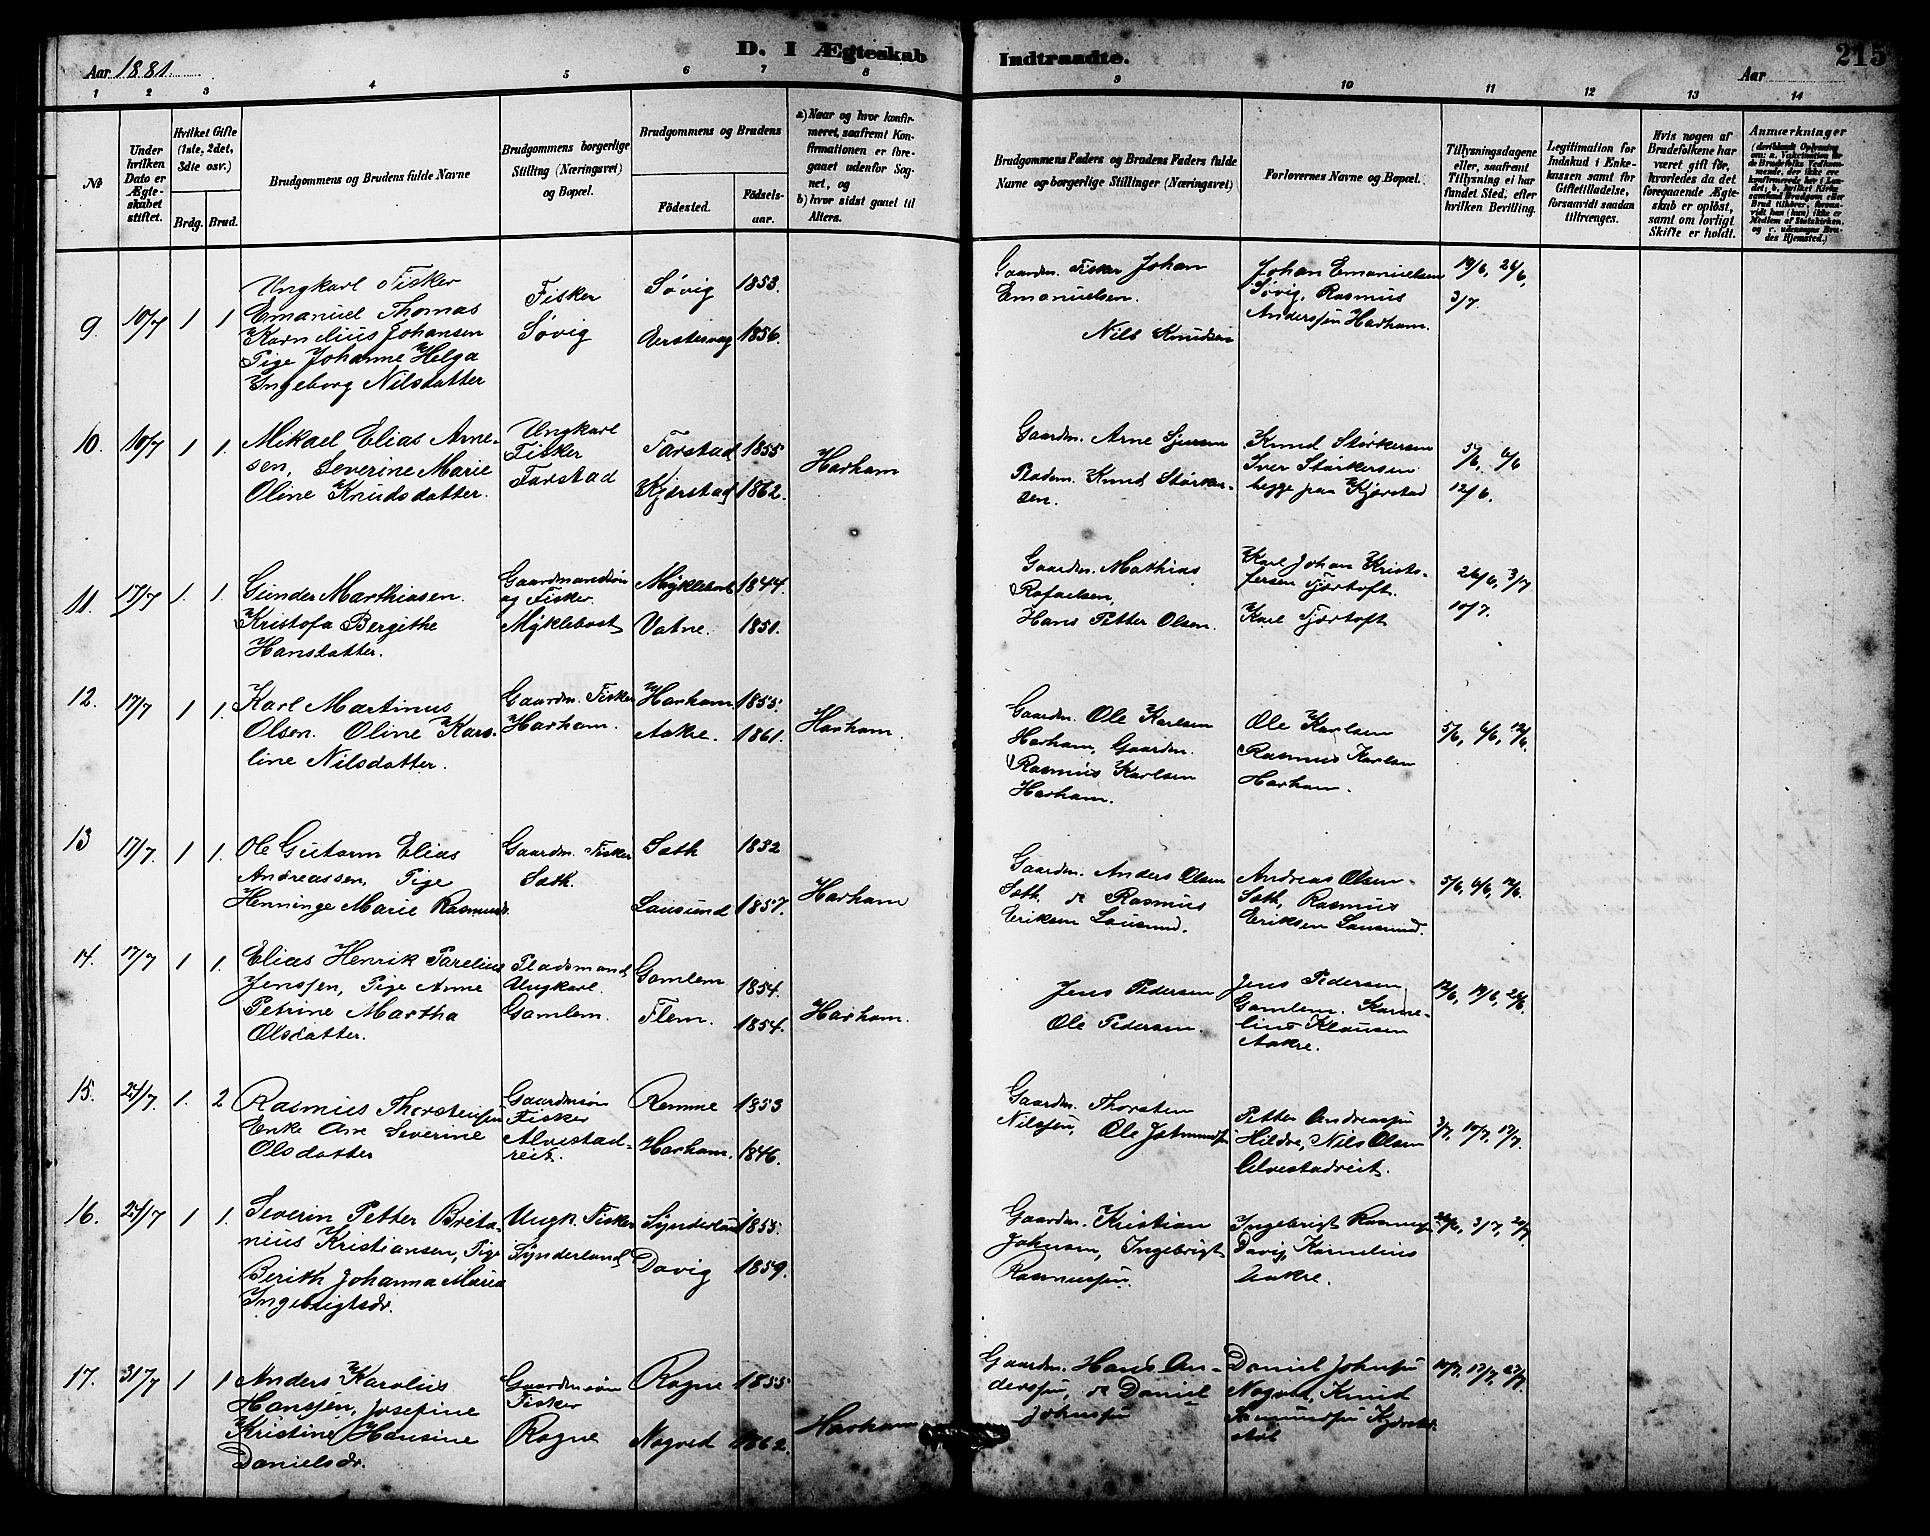 D. I Ægteskab Indtraadte.
215
Aar 1881.
Aar
1 2 3 4 5 6 7 8 9 10 11 12 13 14
No
Under hvilken Dato er Ægteskabet stiftet.
Hvilket Gifte (1ste, 2det, 3die osv.)
Brdg. Brud.
Brudgommens og Brudens fulde Navne
Brudgommens borgerlige Stilling (Næringsvei) og Bopæl.
Brudgommens og Brudens
Fødested.
Fødselsaar.
a) Naar og hvor konfirmeret, saafremt Konfirmationen er foregaaet udenfor Sognet, og
b) hvor sidst gaaet til Alters.
Brudgommens Faders og Brudens Faders fulde Navne og borgerlige Stillinger (Næringsvei)
Forlovernes Navne og Bopæl.
Tillysningsdagene eller, saafremt Tillysning ei har fundet Sted, efter hvilken Bevilling.
Legitimation for Indskud i Enkekassen samt for Giftetilladelse, forsaavidt saadan tiltrænges.
Hvis nogen af Brudefolkene har været gift før, hvorledes da det foregaaende Ægteskab er opløst, samt om lovligt Skifte er holdt.
Anmærkninger
9. 10/7 1 1
Ungkarl Fisker
Emanuel Thomas
Kornelius Johansen
Pige Johanne Helga
Ingeborg Nilsdatter
Fisker
Søvig
Søvig 1853.
1856.
Gaardm. Fisker Johan
Emanuelsen.
Nils Knudsen
Johan Emanuelsen
Søvig, Rasmus
Anderssøn Harham.
19/6, 26/6,
3/7.
10. 10/7 1 1.
Mikael Elias Arne-
sen, Severine Marie
Oline Knudsdatter.
Ungkarl
Fisker
Farstad
Farstad 1855
Kjerstad 1862.
Harham
Gaardm. Arne Sjursen
Pladsm. Knud Størker-
sen.
Knud Størkersen
Iver Størkersen
begge paa Kjerstad
5/6, 6/6
12/6.
11. 17/7 1. 1.
Gunder Marthiasen.
Kristofa Bergithe
Hansdatter.
Gaardmandssøn
og Fisker.
Myklebost
Myklebost 1844.
Vatne. 1851.
Gaardm. Mathias
Rafaelsen,
Hans Petter Olsen.
Karl Johan Kristo-
fersen Fjørtoft.
Karl Fjørtoft
26/6, 3/7
10/7.
12. 17/7 1 1.
Karl Martinus
Olsen. Oline Karo-
line Nilsdatter.
Gaardm. Fisker
Harham.
Harham 1855.
Aakre. 1861.
Harham.
Gaardm. Ole Karlsen
Harham, Gaardm.
Rasmus Karlsen
Harham.
Ole Karlsen
Rasmus Karlsen
Harham.
5/6, 6/6, 12/6.
13 17/7. 1 1.
Ole Gutorm Elias
Andreassen, Pige
Henninge Marie Rasmusd.
Gaardm. Fisker
Sæth.
Sæth 1852
Lausund 1857.
Harham
Gaardm. Anders Olsen
Sæth. & Rasmus
Eriksen Lausund.
Andreas Olsen
Sæth, Rasmus
Eriksen Lausund.
5/6, 6/6, 12/6.
14. 17/7 1 1.
Elias Henrik Parelius
Jenssen, Pige Anne
Petrine Martha
Olsdatter.
Pladsmand
Ungkarl.
Gamlem.
Gamlem 1854.
Flem. 1854.
Harham.
Jens Pedersen
Ole Pedersen.
Jens Pedersen
Gamlem. Korne-
lius Klausen
Aakre.
12/6, 19/6, 26/6.
15. 24/7. 1. 2
Rasmus Thorstenssøn
Enke Ane Severine
Olsdatter
Gaardmsøn
Fisker
Alvestad-
reit.
Remme 1853
Harham. 1846.
Gaardm. Thorsten
Nilssøn,
Petter Andreassøn
Hildre, Nils Olsen
Alvestadreit.
3/7, 10/7, 17/7.
16. 24/7 1 1.
Severin Petter Brita-
nius Kristiansen, Pige
Berith Johanna Maria
Ingebrigtsdr.
Ungk. Fisker
Synderland
Synderland 1855.
Davig 1859.
Gaardm. Kristian
Johnsen, Ingebrigt
Rasmussøn.
Ingebrigt Rasmussøn
Davig, Kornelius
Aakre.
26/6, 3/7,
17. 31/7 1 1
Anders Karolius
Hanssøn, Josefine
Kristine Hansine
Danielsdr.
Gaardmsøn
Fisker
Rogne
Rogne 1855
Nogved 1862.
Harham
Gaardm. Hans An-
derssøn, & Daniel
Johnssøn
Daniel Johnssøn
Nogved, Knud
10/7, 17/7,